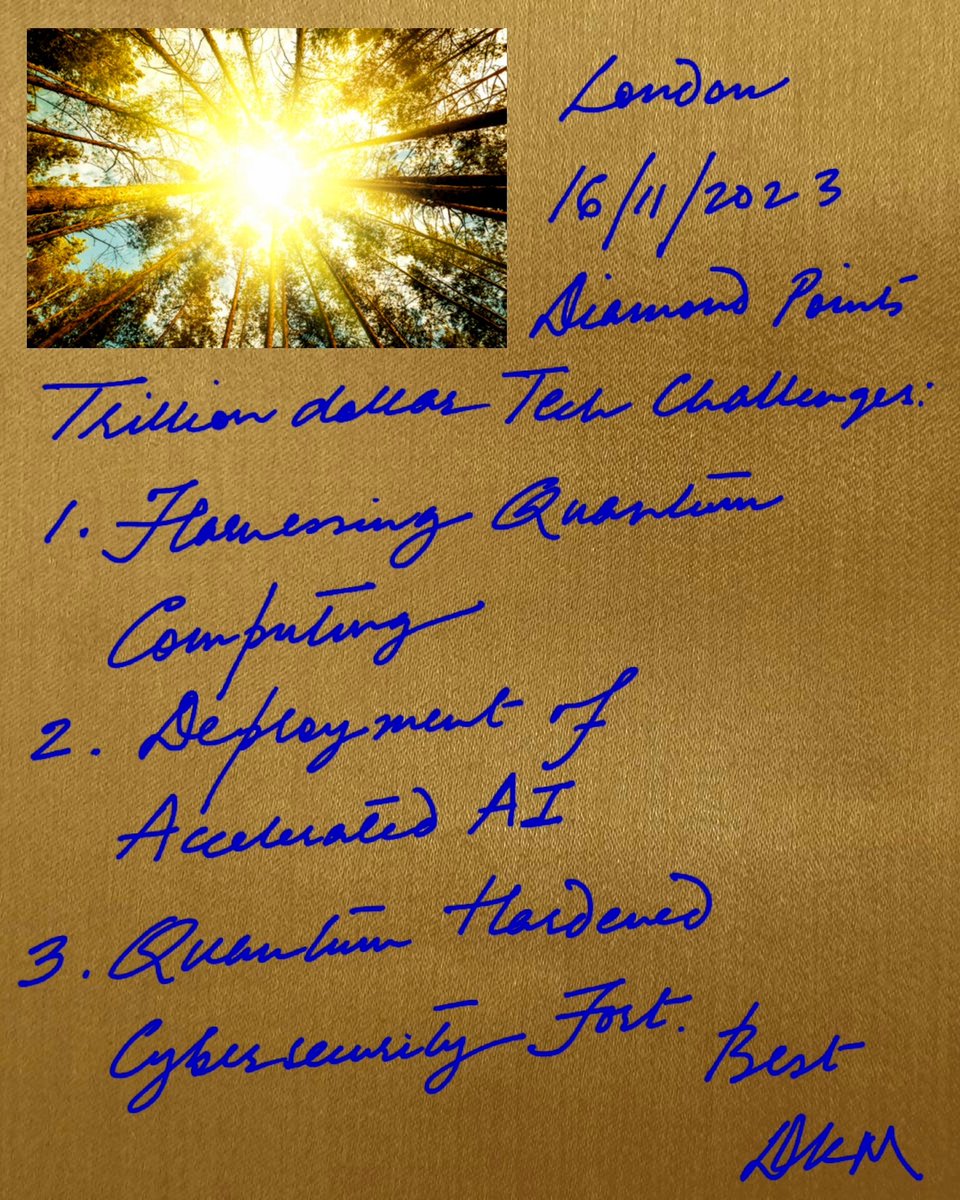 London
16/11/2023
Diamond Points
Trillion dollar Tech Challenges:
1. Harnessing Quantum
Computing
2. Deployment of
Accelerated AI
3. Quantum Hardened
Cybersecurity Fort.
Best
DKM